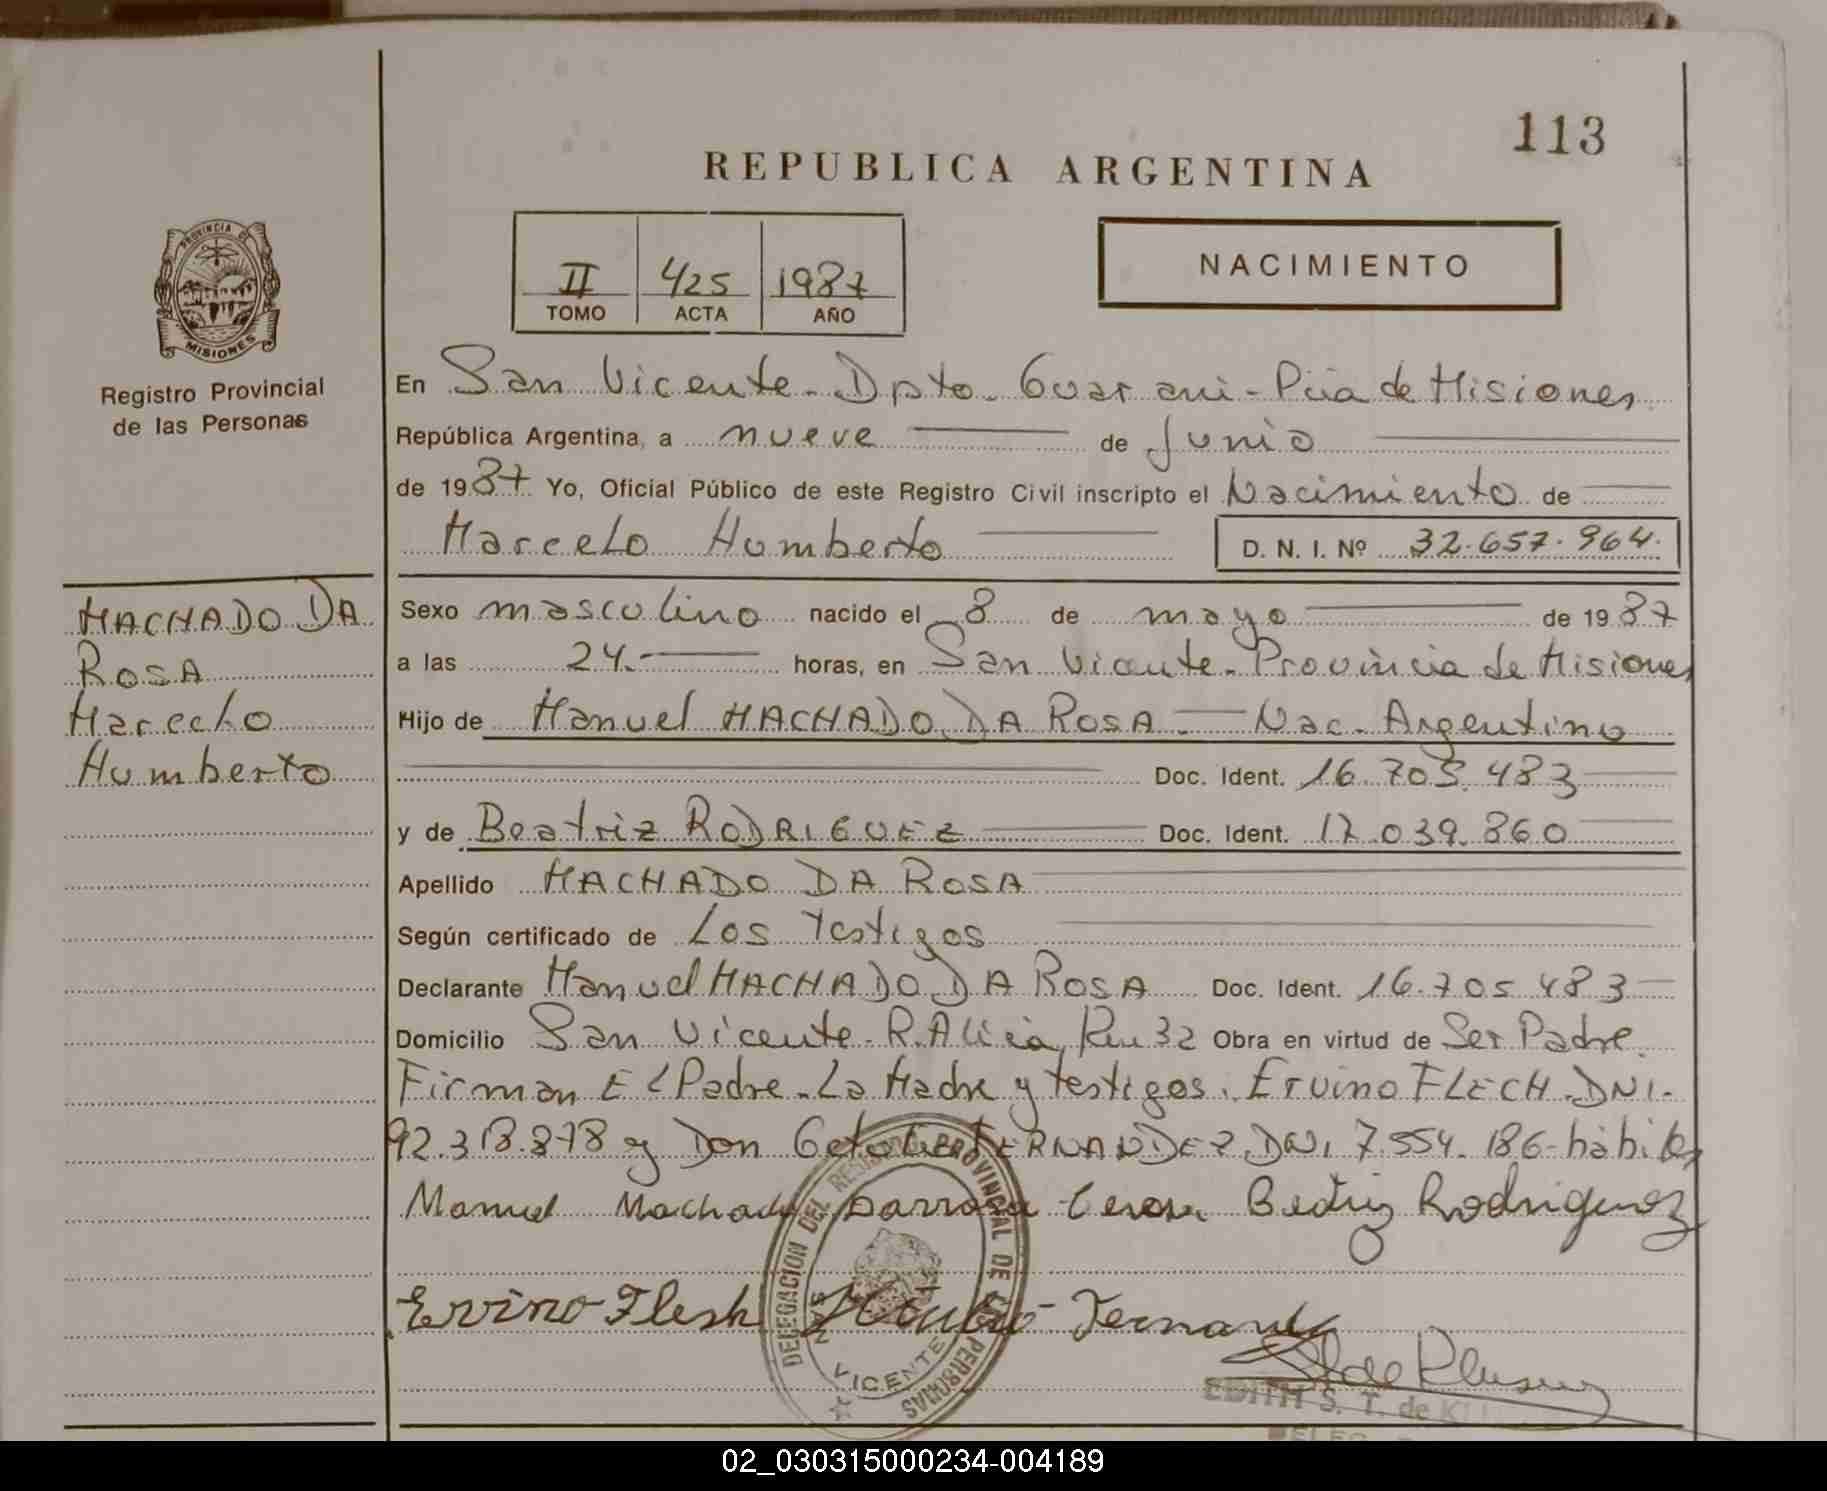 113
REPUBLICA ARGENTINA
PROVINCIA DE
MISIONES
Registro Provincial
de las Personas
II 425 1987
TOMO ACTA AÑO
NACIMIENTO
En San Vicente - Dpto. Guarani - Pcia de Misiones
República Argentina, a nueve de Junio
de 1987 Yo, Oficial Público de este Registro Civil inscripto el Nacimiento de
Marcelo Humberto D. N. I. Nº 32.657.964.
MACHADO DA
ROSA
Marcelo
Humberto
Sexo masculino nacido el 8 de mayo de 1987
a las 24.- horas, en San Vicente - Provincia de Misiones
Hijo de Manuel MACHADO DA ROSA - Nac. Argentino
Doc. Ident. 16.705.483
y de Beatriz RODRIGUEZ Doc. Ident. 17.039.860
Apellido MACHADO DA ROSA
Según certificado de Los Testigos
Declarante Manuel MACHADO DA ROSA Doc. Ident. 16.705.483
Domicilio San Vicente - R. Alicia, Km 32 Obra en virtud de Ser Padre.
Firman El Padre - La Madre y testigos. Ervino FLECH - DNI.
92.313.878 y Don FERNANDEZ, DNI 7.554.186 - hábiles
Manuel Machado Darrosa Beatriz Rodriguez
Ervino Flesh Fernand
DELEGACION DEL REGISTRO PROVINCIAL DE LAS PERSONAS
SAN VICENTE
EDITH S. T. de
02_030315000234-004189